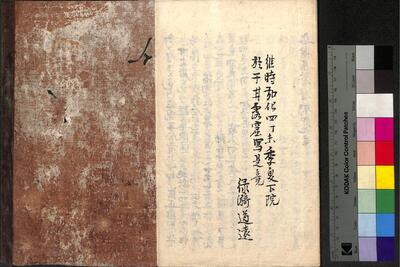 維時弘化四丁未季夏下院
於于甘露窟写是竟
緑漪道遠
KODAK Color Control Patches